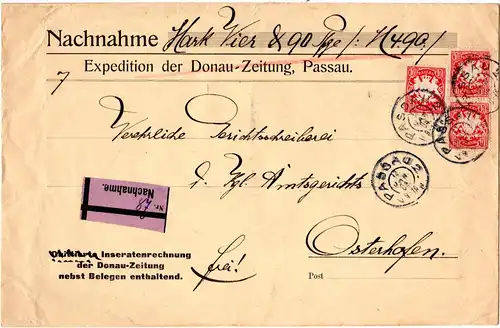 Nachnahme Mark Vier & 90 Pfge /: M 4.90 /
Expedition der Donau-Zeitung, Passau.
7
Verehrliche Gerichtsschreiberei
d. Kgl. Amtsgerichts
Osterhofen.
frei!
Post
Nachnahme.
Nr. 87
Inseratenrechnung
der Donau-Zeitung
nebst Belegen enthaltend.
PASSAU
PASSAU
PASSAU